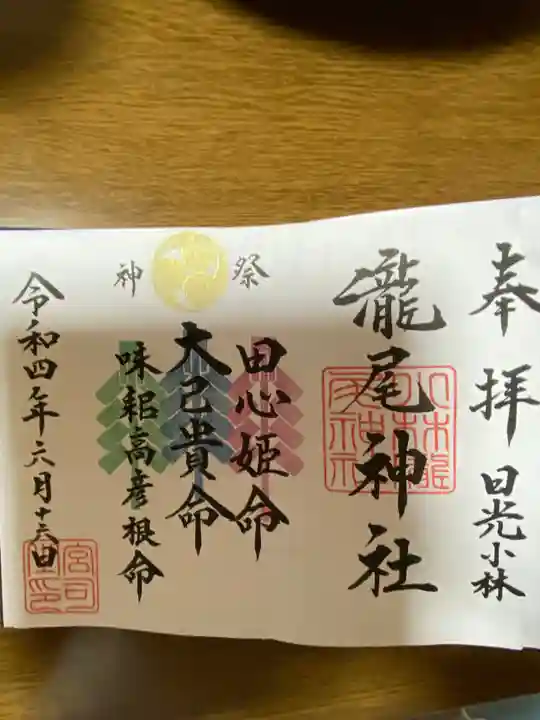 奉拝
日光小林
瀧尾神社
小林瀧尾神社
祭神
田心姫命
大己貴命
味耜高彦根命
令和四年六月十三日
宮司